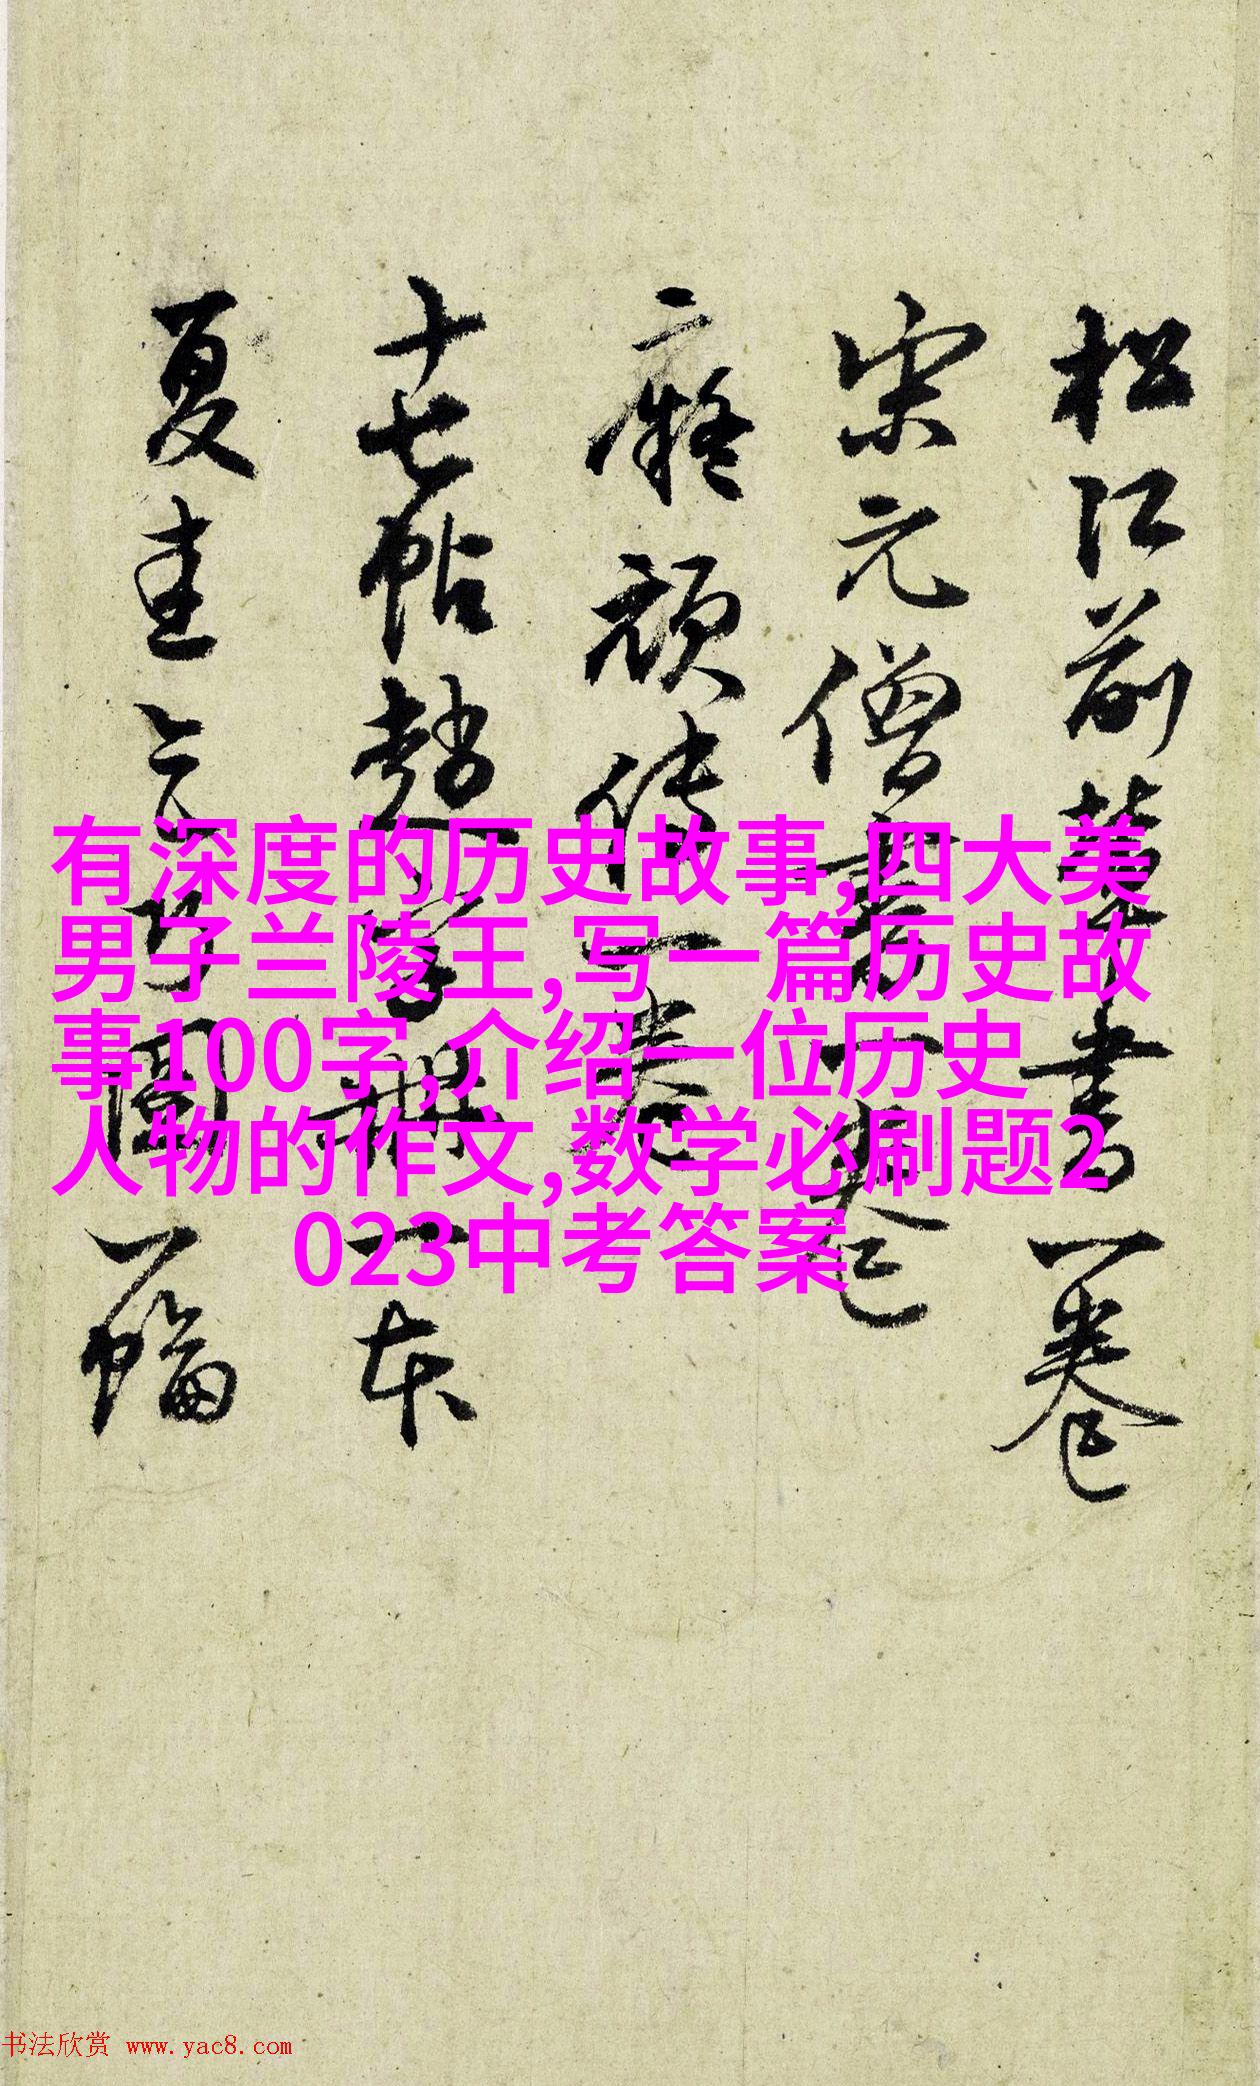 松江前輩書一卷
宋元僧書一卷
二癡頑傳一卷
十七帖趙臨一本
夏圭圖一幅
有深度的历史故事,四大美
男子兰陵王,写一篇历史故
事100字,介绍一位历史
人物的作文,数学必刷题2
023中考答案
书法欣赏 www.yac8.com